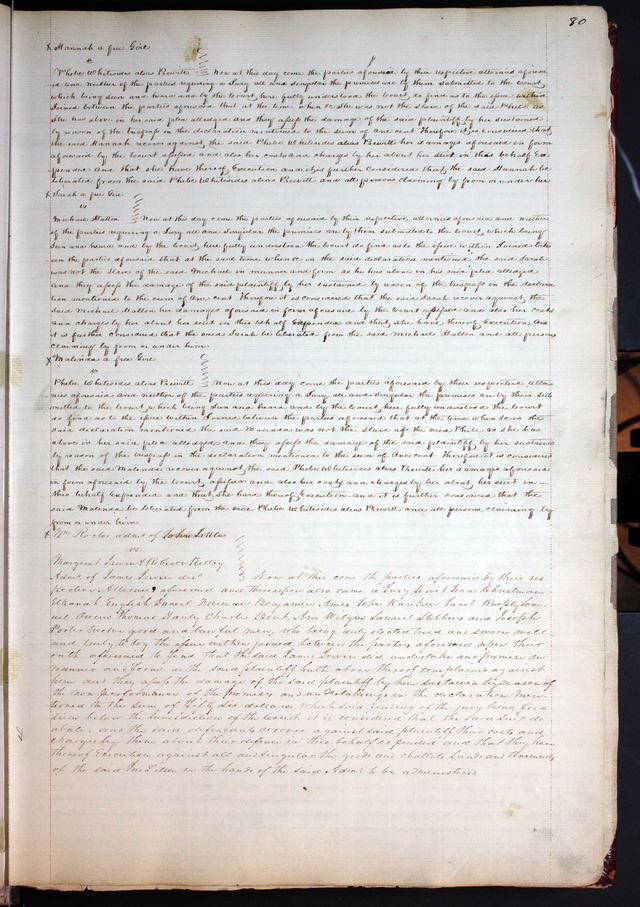 80
x Hannah a free Girl
vs
Phebe Whitesides alias Prewitt Now at this day come the parties aforesaid by their respective attornies afore
said and neither of the parties requiring a Jury all and singular the premises are by them submitted to the Court,
which being seen and heard and by the Court here fully understood the Court do find as to the issue within
Joined between the parties aforesaid that at the time when &c she was not the slave of the said Phebe as
she has above in her said plea alledged and they assess the damage of the said plaintiff by her sustained
by reason of the trespass in the declaration mentioned to the sum of one cent Therefore it is considered that
the said Hannah recover against the said Phebe Whitesides alias Prewitt her damages aforesaid in form
aforesaid by the Court assessed and also her costs and charges by her about her suit in this behalf Ex
pended and that she have thereof Execution and it is further considered that the said Hannah be
liberated from the said Phebe Whitesides alias Prewitt and all persons claiming by from or under her
x Sarah a free Girl
vs
Michael Hatton Now at this day come the parties aforesaid by their respective attornies aforesaid and neither
of the parties requiring a Jury all and singular the premises are by them submitted to the Court, which being
seen and heard and by the Court here fully understood the Court do find as to the issue within Joined betw
een the parties aforesaid that at the said time when &c in the said declaration mentioned the said Sarah
was not the Slave of the said Michael in manner and form as he has above in his said plea alledged
And they assess the damage of the said plaintiff by her sustained by reason of the trespass in the declara
tion mentioned to the sum of One cent Therefore it is considered that the said Sarah recover against, the
said Michael Hatton her damages aforesaid in form aforesaid by the Court assessed and also her costs
and charges by her about her suit in this behalf Expended and that, she have thereof Execution And
it is further considered that the said Sarah be liberated from the said Michael Hatton and all persons
claiming by from or under him
x Malinda a free Girl
vs
Phebe Whitesides alias Prewitt Now at this day come the parties aforesaid by their respective Attor
nies aforesaid and neither of the parties requiring a Jury, all and Singular the premises are by them sub
mitted to the Court, which being seen and heard and by the Court, here fully understood the Court
do find as to the issue within Joined between the parties aforesaid that at the time when &c in the
said declaration mentioned the said Malinda was not the Slave of the said Phebe as she has
above in her said plea alledged and they assess the damage of the said plaintiff, by her sustained
by reason of the trespass in the declaration mentioned to the sum of One cent Therefore it is considered
that the said Malinda recover against, the said Phebe Whitesides alias Prewitt her damages aforesaid
in form aforesaid by the Court, assessed and also her costs and charges by her about, her suit in
this behalf Expended and that, she have thereof Execution and it is further considered that the
said Malinda be liberated from the said Phebe Whitesides alias Prewitt and all persons claiming by
from or under him
x Wm Rector admr of John Little
vs
Margaret Irwin & Robison Kelley
Admrs of James Irwin decd Now at this come the parties aforesaid by their res
pective Attornies aforesaid and thereupon also came a Jury
Elkanah English Daniel Freeman Benjamin Ames John Rankin Jacob
uel Owens Thomas Charles Bent, Asa Samuel Stebbens and Joseph
Porter twelve good and lawful men, who being duly elected tried and sworn well
and truly to try the issue within joined between the parties aforesaid upon their
oath aforesaid do find that the said James Irwin did undertake and promise in
manner and form as the said plaintiff hath above thereof complained against
him and they assess the damage of the said plaintiff by him sustained by reason of
the non performance of the promises and undertakings in the declaration men
tioned to the sum of fifty six dollars Which said finding of the jury being for a
sum below the Jurisdiction of the Court it is considered that the said suit do
abate, and the said defendants recover against said plaintiff their costs and
charges by them about their defence in this behalf expended and that they have
thereof Execution against all and singular the goods and chattels Lands and tenements
of the said Jno Little in the hands of the said Admr to be administered